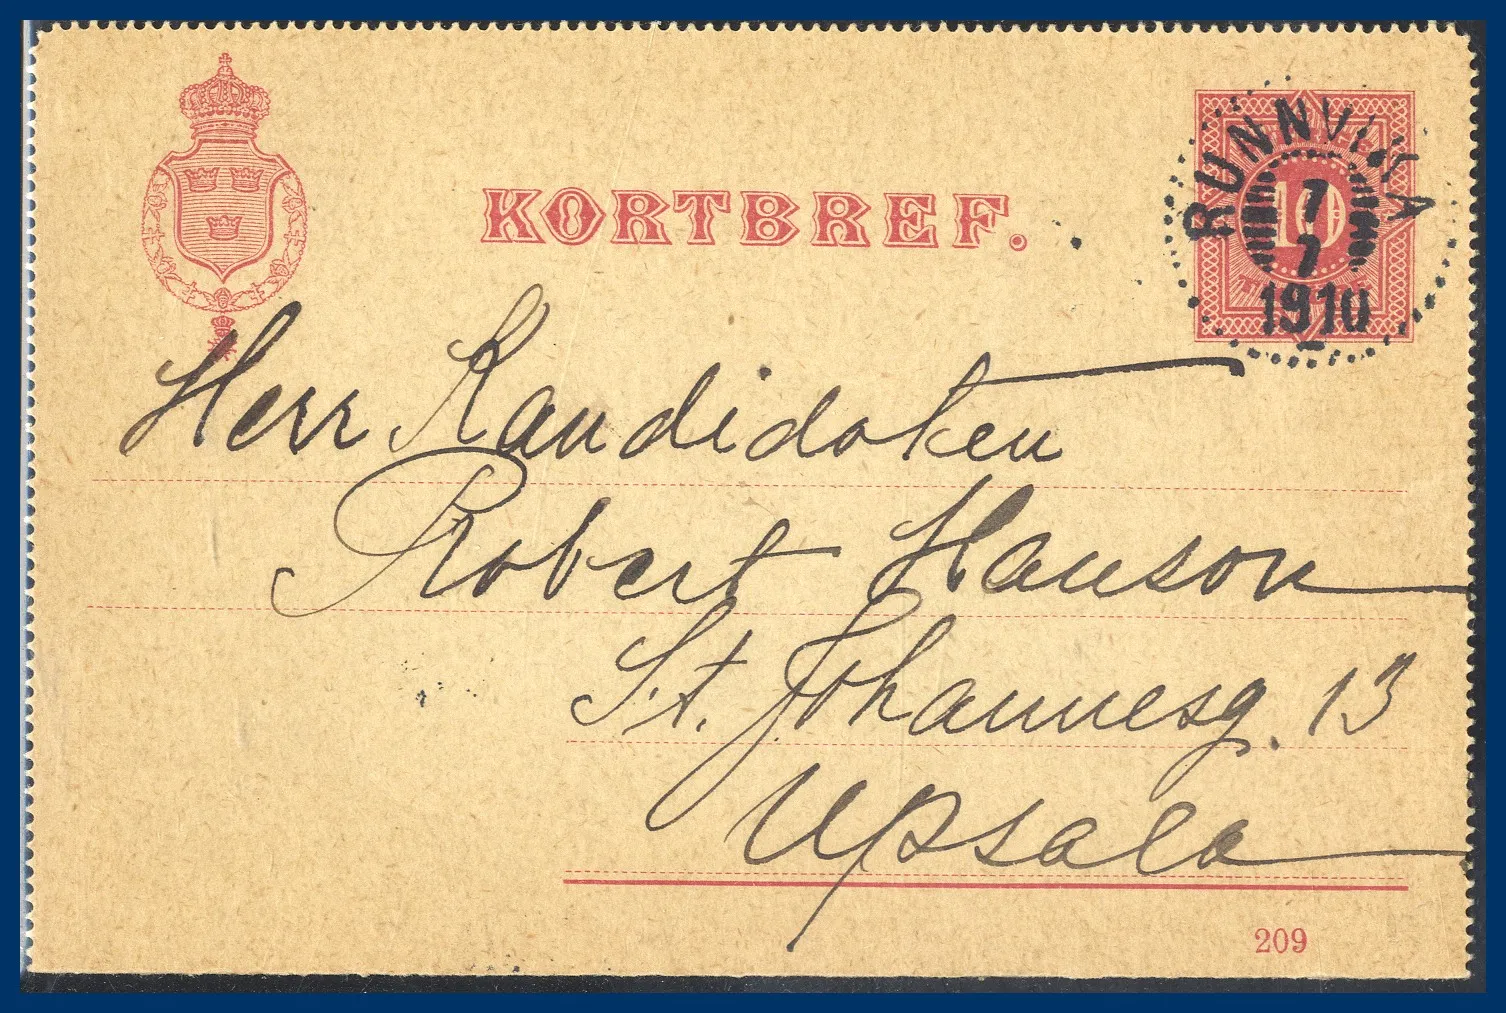 KORTBREF.
RUNNVIKA
10
7
7
1910
Herr Kandidaten
Robert Hanson
St. Johannesg. 13
Upsala
209